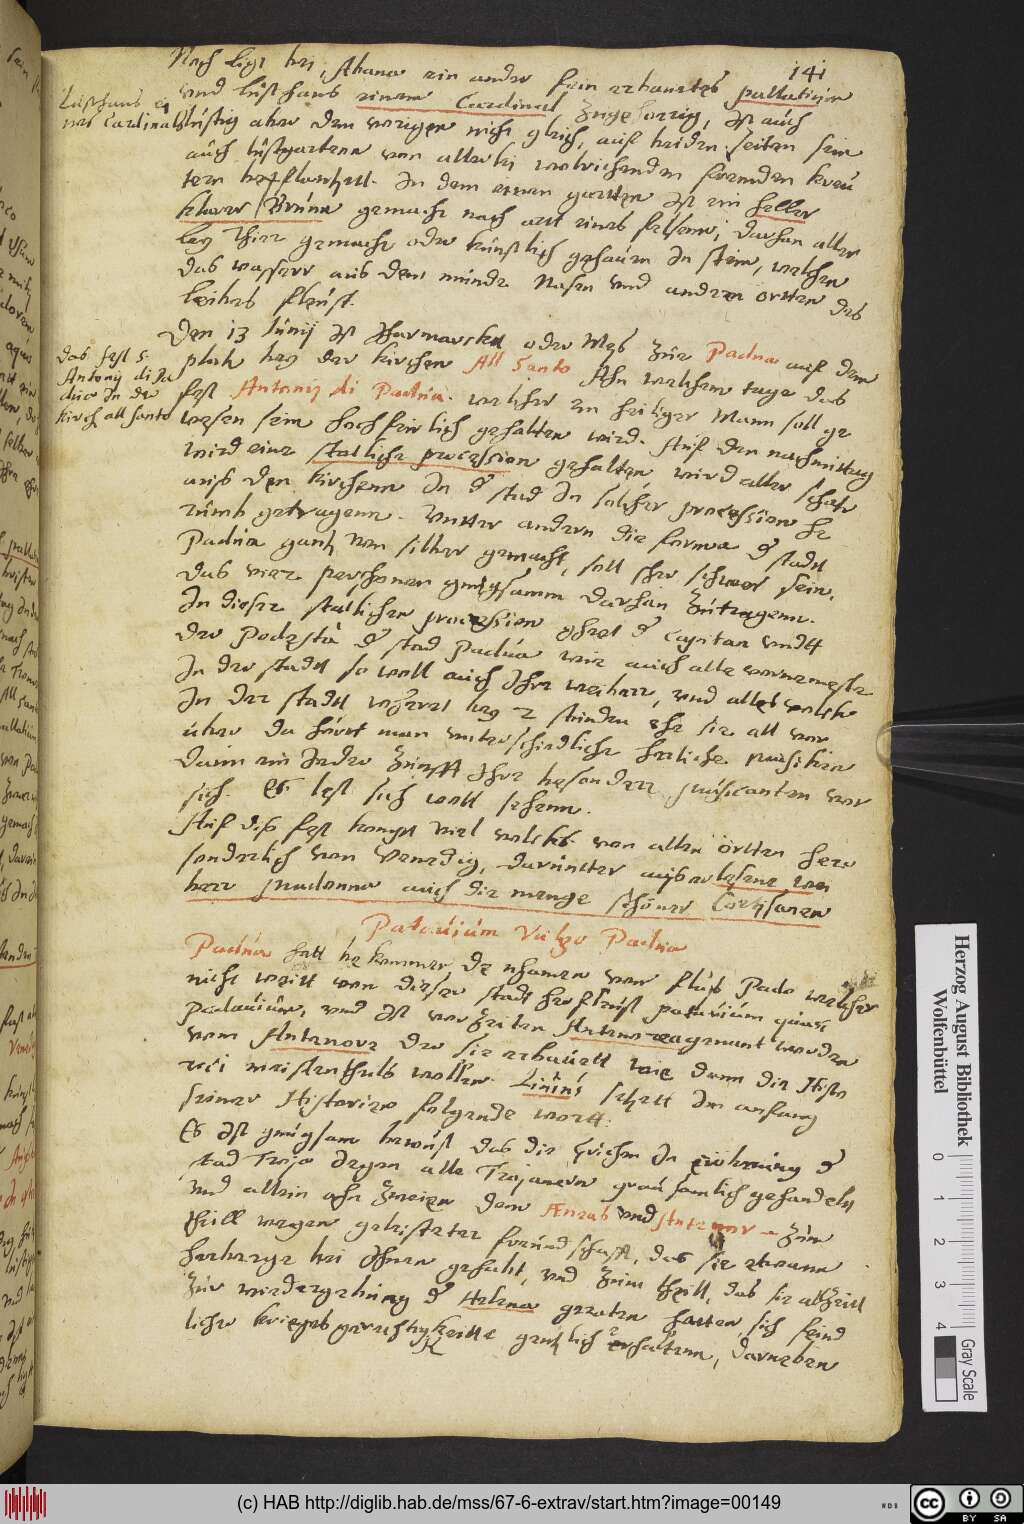 141
Noch ligt bei Abano ein ander fein erbauetes pallatium
und lusthaus einem Cardinal zugehorrig, ist auch
lustig aber dem vorigen nicht gleich, auf beiden seiten sein
auch lustgartenn von allerlei wolrichenden fremden kreu
tern bepflantzett. In dem einen gartten ist ein heller
klarer Brunn gemacht nach artt eines felsens, darhan aller
ley thier gemacht oder kunstlich gehauen in stein, welchen
das wasserr aus dem munde Nasen und andern ortten des
leibes fleust.
Lusthaus ei
nes Cardinals
Den 13 Junij ist Jharmarckt oder Mes zue Padua auf dem
platz bey der kirchen All Santo Ahn welchem tage das
fest Antonij di Padua. welcher ein heiliger Mann soll ge
wesen sein hochfeirlich gehalten wird. Auf den nachmittag
wird eine statliche procession gehalten, wird aller schatz
aus den kirchenn in der stad in solcher procession he
rumb getragenn. Untter andern die forma der stadt
Padua gantz von silber gemacht, soll sehr schwer sein,
das vier perschonen gnugsamm darhan zutragenn.
das fest S.
Antonij di Pa
dua in der
kirch all santo
In dieser statlichen procession gehet der capitan undt
der Podesta der stad Padua wie auch alle vornemeste
in der stadt so woll auch Ihre weiber, und alles volck
in der stadt weret bey 2 stunden ehe sie all vor
uber da hörtt man unterschidliche herliche musiken
dann ein Jeder zunfft Ihre besonderr musicanten vor
sich. Es lest sich woll sehenn.
Auf dis fest kompt viel volckes von allen örtten hero
sonderlich von Venedig, daruntter auserlesene von
herr madonna auch die menge schöner Cortisanen
Patauium Vulgo Padua
Padua hatt bekommen de nhamen vom flus Pado welcher
nicht weitt von dieser stadt herfleust patauium quasi
Padauium, und ist vor Zeiten Antenorea genant worden
vom Antenore der sie erbauett wie dann die Histo
rici meistentheils wollen. Liuius setzett im anfang
seiner Historien folgende wortt:
Es ist gnugsam bewust das die Grichen in eroberung der
stad Troja gegen alle Trojanern grausamlich gehandelt
und allein ohn zweien dem Æneas und Antenor zum
theill wegen geleisteter freundschafft, das sie etwann
herberge bei Ihnen gehabt, und zum theill, das sie alzeitt
zur wiedergebung der Helena geraten hatten, sich feind
licher kriegsgerechtigkeitt gentzlich enthaltenn, darneben
Herzog August Bibliothek
Wolfenbüttel
0 1 2 3 4
Gray Scale
(c) HAB http://diglib.hab.de/mss/67-6-extrav/start.htm?image=00149
WDB
cc BY SA